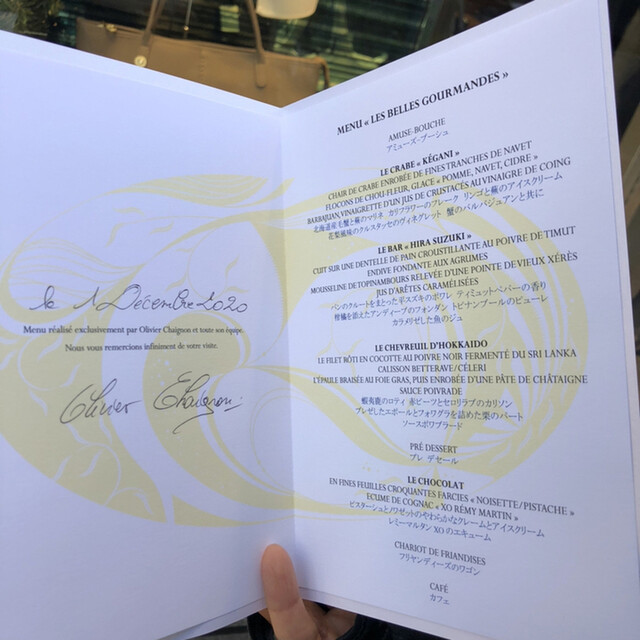 le 1 Décembre 2020
Menu réalisé exclusivement par Olivier Chaignon et toute son équipe.
Nous vous remercions infiniment de votre visite.
Olivier Chaignon
MENU « LES BELLES GOURMANDES »
AMUSE-BOUCHE
アミューズ・ブーシュ
LE CRABE « KÉGANI »
CHAIR DE CRABE ENROBÉE DE FINES TRANCHES DE NAVET
FLOCONS DE CHOU-FLEUR, GLACE « POMME, NAVET, CIDRE »
BARBAJUAN, VINAIGRETTE D'UN JUS DE CRUSTACÉS AU VINAIGRE DE COING
北海道産毛蟹と蕪のマリネ カリフラワーのフレーク リンゴと蕪のアイスクリーム
花梨風味のクルスタッセのヴィネグレット 蟹のバルバジュアンと共に
LE BAR « HIRA SUZUKI »
CUIT SUR UNE DENTELLE DE PAIN CROUSTILLANTE AU POIVRE DE TIMUT
ENDIVE FONDANTE AUX AGRUMES
MOUSSELINE DE TOPINAMBOURS RELEVÉE D'UNE POINTE DE VIEUX XÉRÈS
JUS D'ARÊTES CARAMÉLISÉES
パンのクルートを纏った平スズキのポワレ ティミュットペパーの香り
柑橘を添えたアンディーブのフォンダン トピナンブールのピューレ
カラメリゼした魚のジュ
LE CHEVREUIL D'HOKKAIDO
LE FILET RÔTI EN COCOTTE AU POIVRE NOIR FERMENTÉ DU SRI LANKA
CALISSON BETTERAVE/CÉLERI
L'ÉPAULE BRAISÉE AU FOIE GRAS, PUIS ENROBÉE D'UNE PÂTE DE CHÂTAIGNE
SAUCE POIVRADE
蝦夷鹿のロティ 赤ビーツとセロリラブのカリソン
ブレゼしたエポールとフォワグラを詰めた栗のパート
ソースポワブラード
PRÉ DESSERT
プレ デセール
LE CHOCOLAT
EN FINES FEUILLES CROQUANTES FARCIES « NOISETTE/PISTACHE »
ECUME DE COGNAC « XO RÉMY MARTIN »
ピスターシュとノワゼットのやわらかなクレームとアイスクリーム
レミーマルタン XO のエキューム
CHARIOT DE FRIANDISES
フリヤンディーズのワゴン
CAFÉ
カフェ